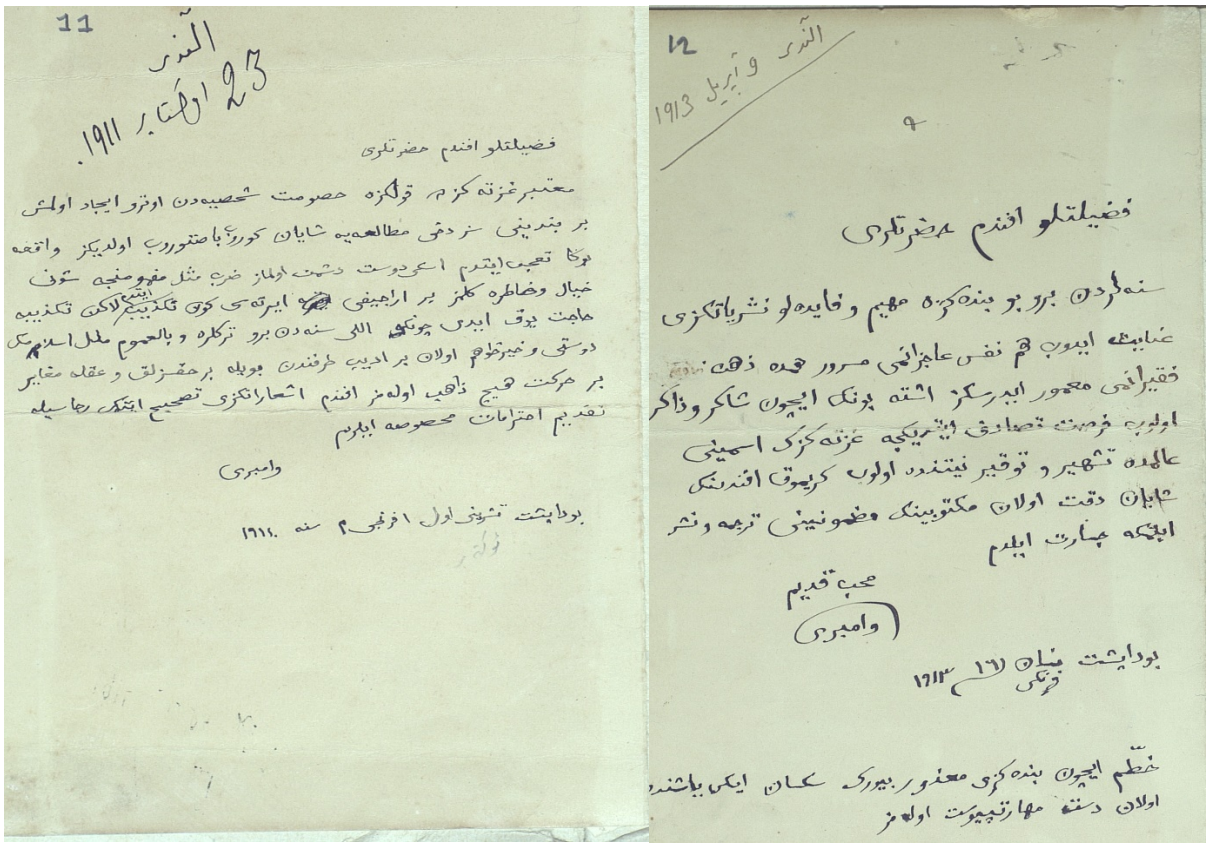 11
آلندی
23 اوكتابر 1911.
فضيلتلو افندم حضرتلری
معتبر غزته كزده قولكزه خصومت شخصيه دن اوترو ايجاد اولمش
بر بندينی سز دخی مطالعه يه شايان كوروب باصدوروب اولديكز واقعه
بوكا تعجب ايتدم اسكی دوست دشمن اولماز ضرب مثل مفهومنجه شونی
خيال وخاطره كلمز بر اراجيفی ايرته سی كون تكذيب ايتدم لاكن تكذيبه
حاجت يوق ايدی چونكه اللی سنه دن برو تركلره و بالعموم ملل اسلامنك
دوستی وخيرخواهی اولان بر اديب طرفندن بويله برحقسزلق و عقله مغاير
بر حركت هيچ ذاهب اوله مز افندم اشعاراتكزی تصحيح ايتمك رجاسيله
تقديم احترامات مخصوصه ايلرم
وامبری
بوداپشت تشرينی اول افرنجی سنه ۱۹۱۱
12
آلندی 9 آپريل 1913
فضيلتلو افندم حضرتلری
سنه لردن برو بو بنده كزه مهيم و فايده لو نشرياتكزی
عنايت ايدوب هم نفس عاجزانمی مسرور همده ذهن
فقيرانمی معمور ايدرسكز اشته بونك ايچون شاكر و ذاكر
اولوب فرصت تصادف ايتديكچه غزته كزك اسمينی
عالمده تشهير و توقير نيتنده اولوب كريموف افندينك
شايان دقت اولان مكتوبينك مضمونينی ترجمه و نشر
ايتمكه جسارت ايلدم
محب قديم
وامبری
بوداپشت نيسان ۱٦ ۱۹۱۳
فرنكی
خطّم ايچون بنده كزی معذور بيورك سكسان ايكی ياشنده
اولان دست مهارت پيوست اوله مز